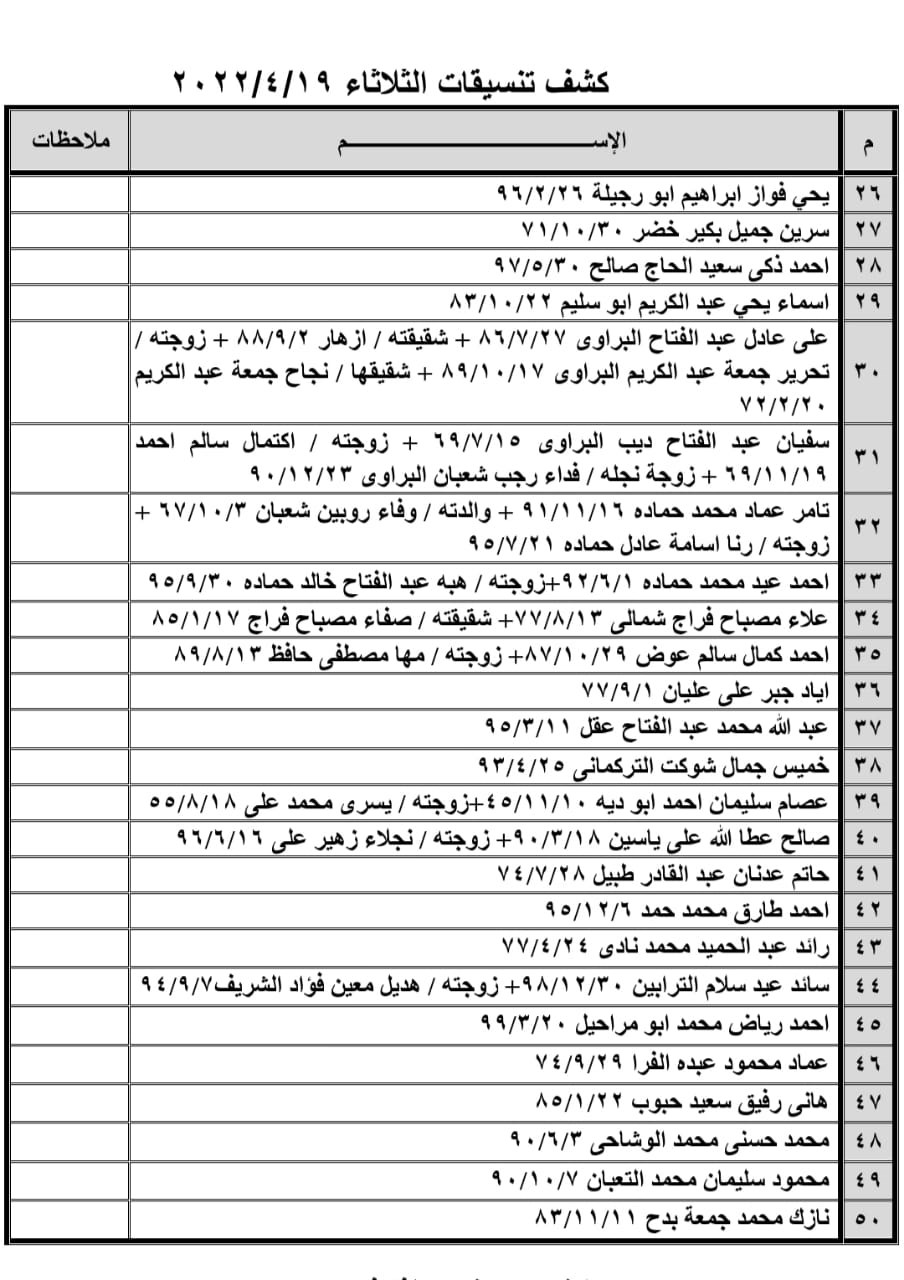 كشف تنسيقات الثلاثاء ٢٠٢٢/٤/١٩
م الإســــــــــــــــــــــــــــم ملاحظات
٢٦ يحي فواز ابراهيم ابو رجيلة ٩٦/٢/٢٦
٢٧ سرين جميل بكير خضر ٧١/١٠/٣٠
٢٨ احمد ذكى سعيد الحاج صالح ٩٧/٥/٣٠
٢٩ اسماء يحي عبد الكريم ابو سليم ٨٣/١٠/٢٢
٣٠ على عادل عبد الفتاح البراوى ٨٦/٧/٢٧ + شقيقته / ازهار ٨٨/٩/٢ + زوجته /
تحرير جمعة عبد الكريم البراوى ٨٩/١٠/١٧ + شقيقها / نجاح جمعة عبد الكريم
٧٢/٢/٢٠
٣١ سفيان عبد الفتاح ديب البراوى ٦٩/٧/١٥ + زوجته / اكتمال سالم احمد
٦٩/١١/١٩ + زوجة نجله / فداء رجب شعبان البراوى ٩٠/١٢/٢٣
٣٢ تامر عماد محمد حماده ٩١/١١/١٦ + والدته / وفاء روبين شعبان ٦٧/١٠/٣ +
زوجته / رنا اسامة عادل حماده ٩٥/٧/٢١
٣٣ احمد عيد محمد حماده ٩٢/٦/١+زوجته / هبه عبد الفتاح خالد حماده ٩٥/٩/٣٠
٣٤ علاء مصباح فراج شمالى ٧٧/٨/١٣+ شقيقته / صفاء مصباح فراج ٨٥/١/١٧
٣٥ احمد كمال سالم عوض ٨٧/١٠/٢٩+ زوجته / مها مصطفى حافظ ٨٩/٨/١٣
٣٦ اياد جبر على عليان ٧٧/٩/١
٣٧ عبد الله محمد عبد الفتاح عقل ٩٥/٣/١١
٣٨ خميس جمال شوكت التركمانى ٩٣/٤/٢٥
٣٩ عصام سليمان احمد ابو ديه ٤٥/١١/١٠+زوجته / يسرى محمد على ٥٥/٨/١٨
٤٠ صالح عطا الله على ياسين ٩٠/٣/١٨+ زوجته / نجلاء زهير على ٩٦/٦/١٦
٤١ حاتم عدنان عبد القادر طبيل ٧٤/٧/٢٨
٤٢ احمد طارق محمد حمد ٩٥/١٢/٦
٤٣ رائد عبد الحميد محمد نادى ٧٧/٤/٢٤
٤٤ سائد عيد سلام الترابين ٩٨/١٢/٣٠+ زوجته / هديل معين فؤاد الشريف٩٤/٩/٧
٤٥ احمد رياض محمد ابو مراحيل ٩٩/٣/٢٠
٤٦ عماد محمود عبده الفرا ٧٤/٩/٢٩
٤٧ هانى رفيق سعيد حبوب ٨٥/١/٢٢
٤٨ محمد حسنى محمد الوشاحى ٩٠/٦/٣
٤٩ محمود سليمان محمد التعبان ٩٠/١٠/٧
٥٠ نازك محمد جمعة بدح ٨٣/١١/١١